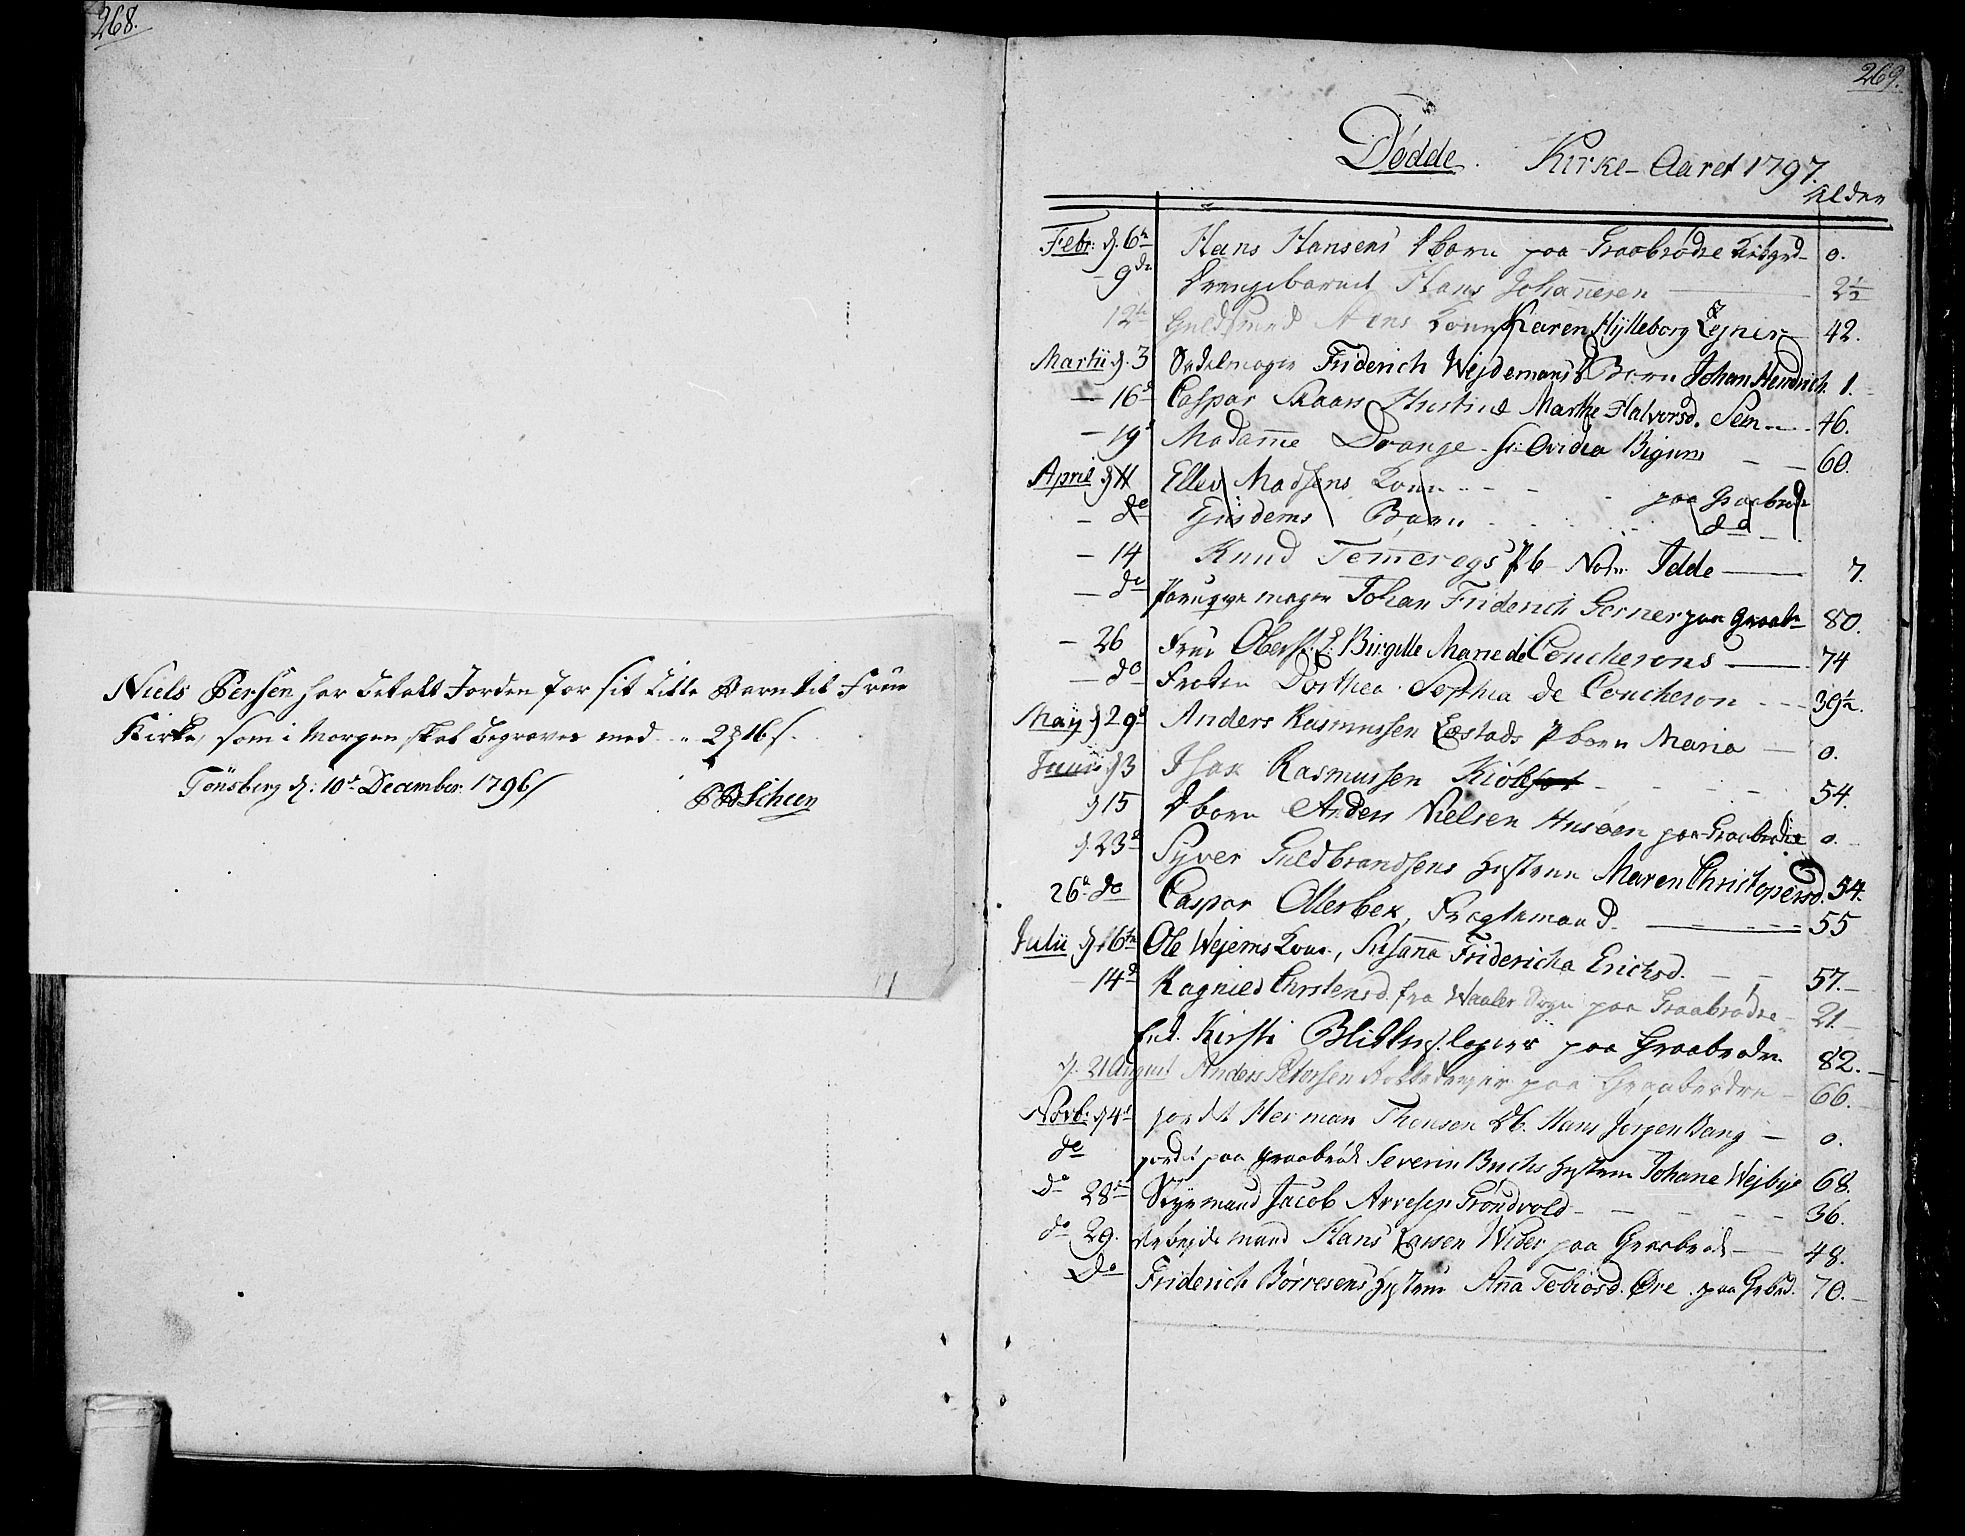 268.
Niels Persen har betalt Jorden for sit lille Barn til Frue
Kirke, som i Morgen skal begraves med
Tønsberg d: 10de December 1796
Scheen
269.
Dødde. Kirke-Aaret 1797.
Alder
Febr: d. 6te Hans Hansens barn paa Graabrødre 0.
9de Drengebarnet Hans Johannesen 2½
12te Guldsmed Kone Karen Hylleborg Lejner 42.
Martii d. 3 Sadelmager Friderich Wejdemans Barn Johan Hendrich. 1.
16d Caspar Skaars Hustrue Marthe Halvorsd. Sem 46.
19d Madamme Drange Ovidia Bigum 60.
April d. 11 Ellev Madsens Kone paa Graabrødr
do Ejusdems Barn do
14 Knud Nodr Idde 7.
do Paruqvemager Johan Friderich Gerner paa Graabr 80.
26 Frue Oberst L: Birgitte Marie de Coucherons 74
do Frøken Dorthea Sophia de Coucheron 39½.
Maij d 29d Anders Rasmussen Læstads barn Maria 0.
Junii d 3 Isak Rasmussen 54.
d 15 barn Anders Nielsen Husøen paa Graabrødre 0.
d. 23d Syver Guldbrandsens Hustrue Maren Christophersd. 54.
26d do Caspar Ollerbek, Fragtemand. 55
Julii d. 16te Ole Wejems Kone, Susanna Fridericha Erichsd. 57.
14d Ragnild Christensd. fra Waaler Sogn paa Graabrødre 21.
Enk. Kirsti paa Graabrødre 82.
d. 21 August Anders Petersen paa Graabrødre 66.
Novb: d 4d jordet Herman Thomsen Hans Jørgen Bang 0.
do jordet paa Graabrød Severin Buchs Hustrue Johane Wejbye 68.
do 28d Styrmand Jacob Arvesen Grøndvold 36.
do 29. Arbejdsmand Hans Larsen paa Graabrød 48.
Do Friderich Børresens Hustrue Anna Tobiasd. Øre paa Grbrd. 70.